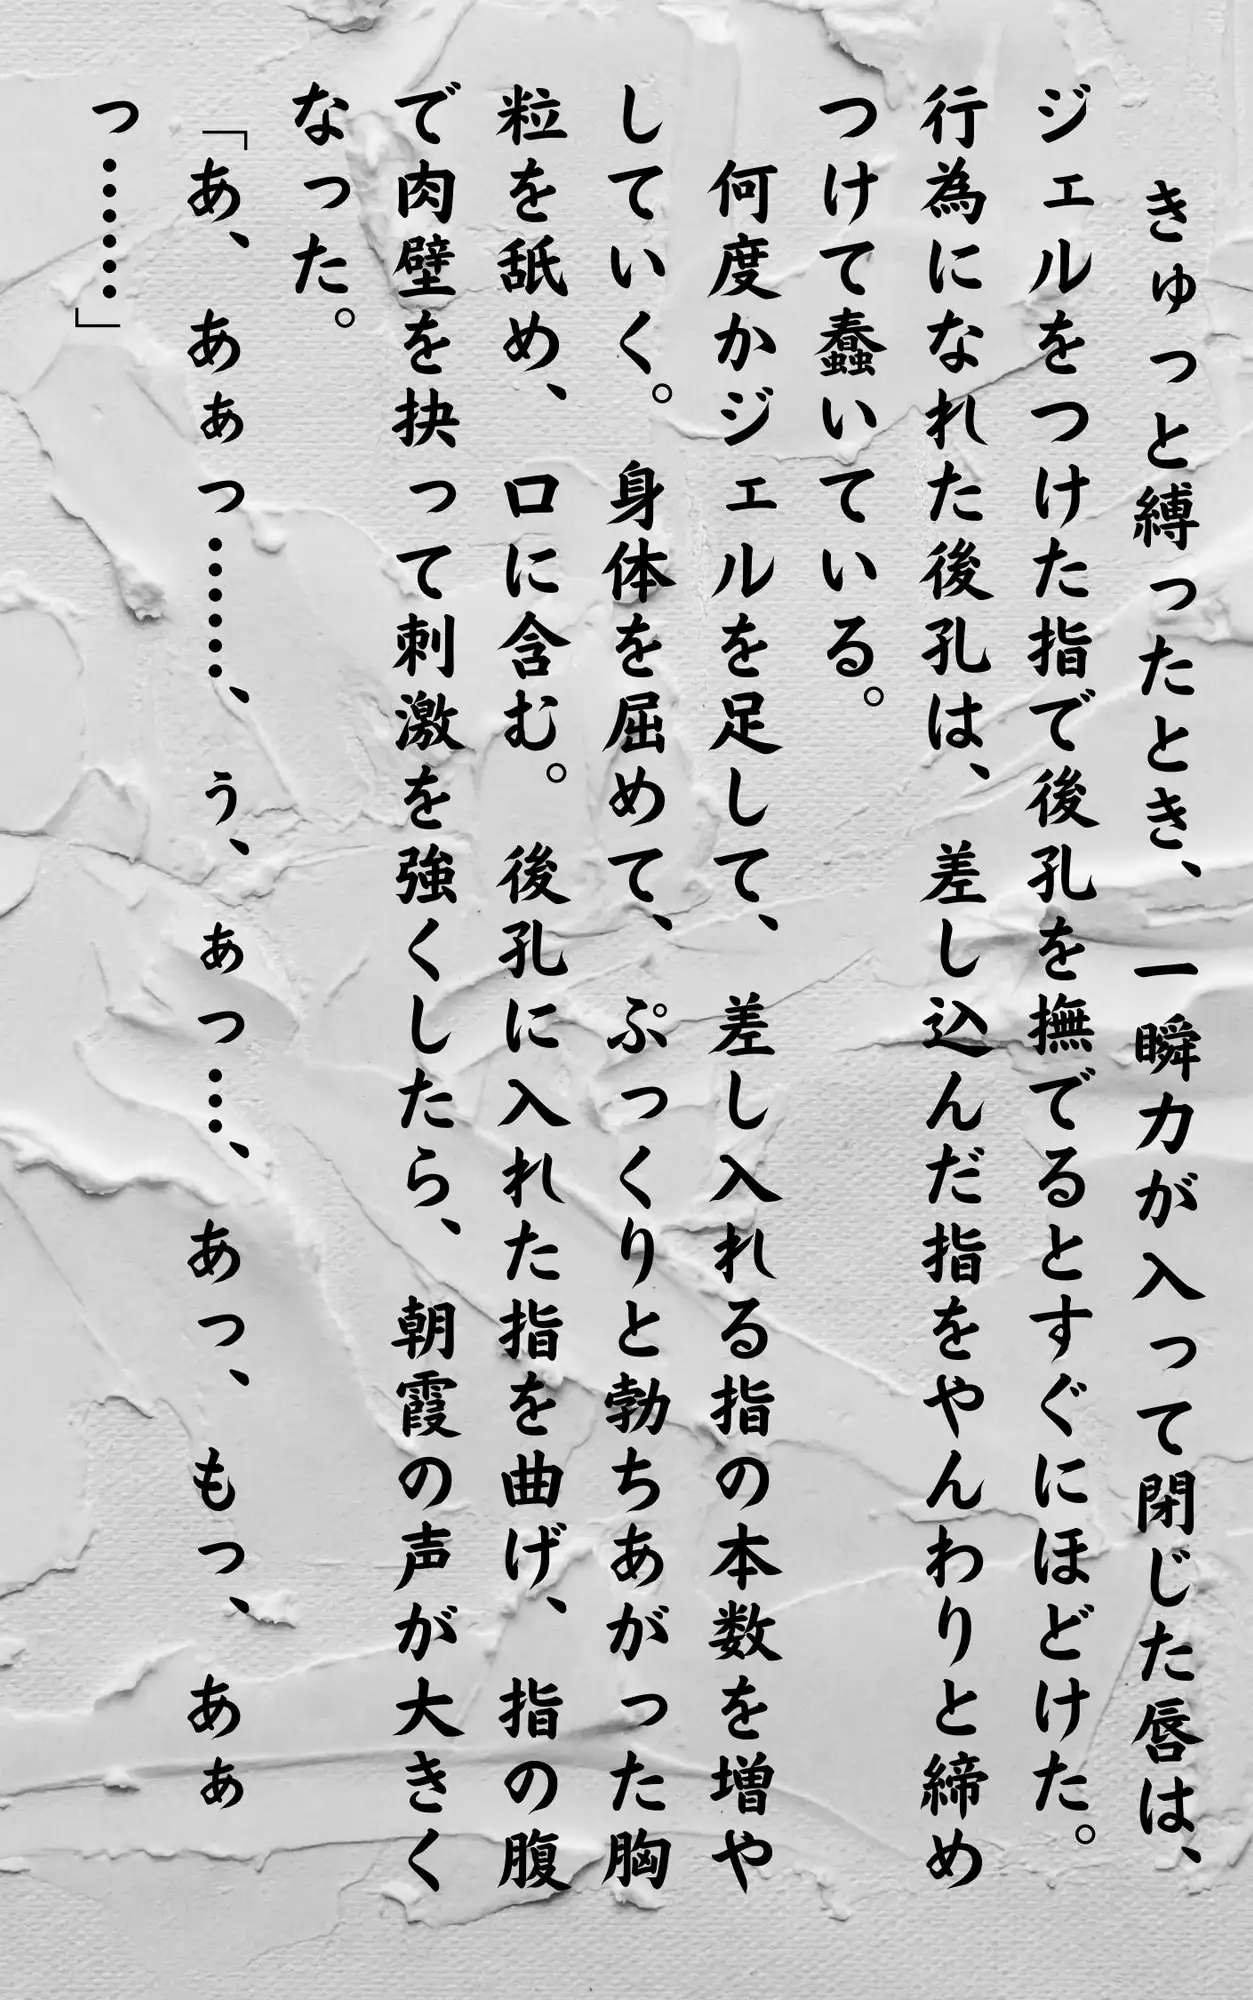 きゅっと縛ったとき、一瞬力が入って閉じた唇は、
ジェルをつけた指で後孔を撫でるとすぐにほどけた。
行為になれた後孔は、差し込んだ指をやんわりと締め
つけて蠢いている。
何度かジェルを足して、差し入れる指の本数を増や
していく。身体を屈めて、ぷっくりと勃ちあがった胸
粒を舐め、口に含む。後孔に入れた指を曲げ、指の腹
で肉壁を抉って刺激を強くしたら、朝霞の声が大きく
なった。
「あ、あぁっ……、ぅ、ぁっ…、あっ、もっ、あぁ
っ……」